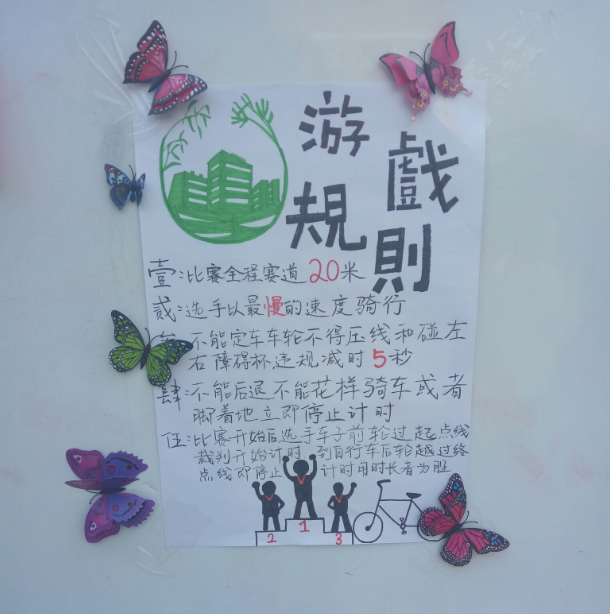 游戲
規則
壹:比赛全程赛道20米
贰:选手以最慢的速度骑行
不能定车车轮不得压线和碰左
右障碍杯违规减时5秒
肆:不能后退不能花样骑车或者
脚着地立即停止计时
伍:比赛开始后选手车子前轮过起点线
裁判开始计时 到自行车后轮越过终
点线即停止 计时用时长者为胜
1
2 3